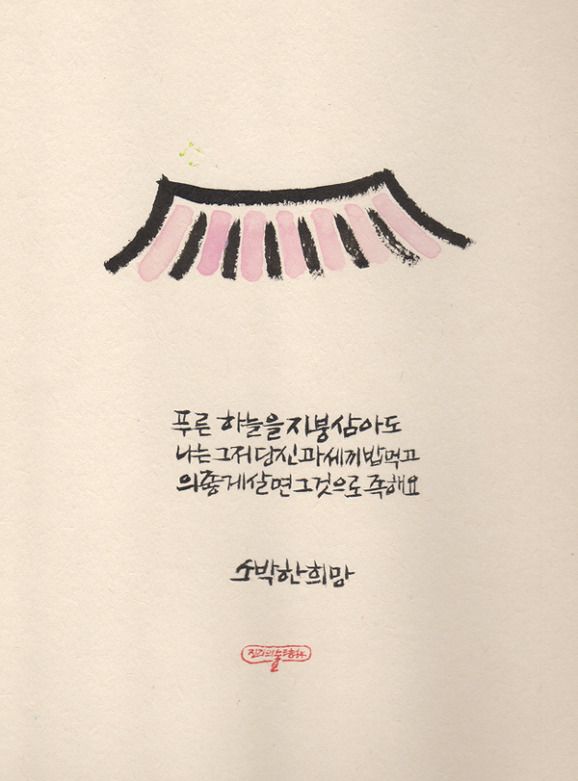 푸른 하늘을 지붕삼아도
나는 그저 당신과 세끼 밥먹고
의좋게 살면 그것으로 족해요
소박한 희망